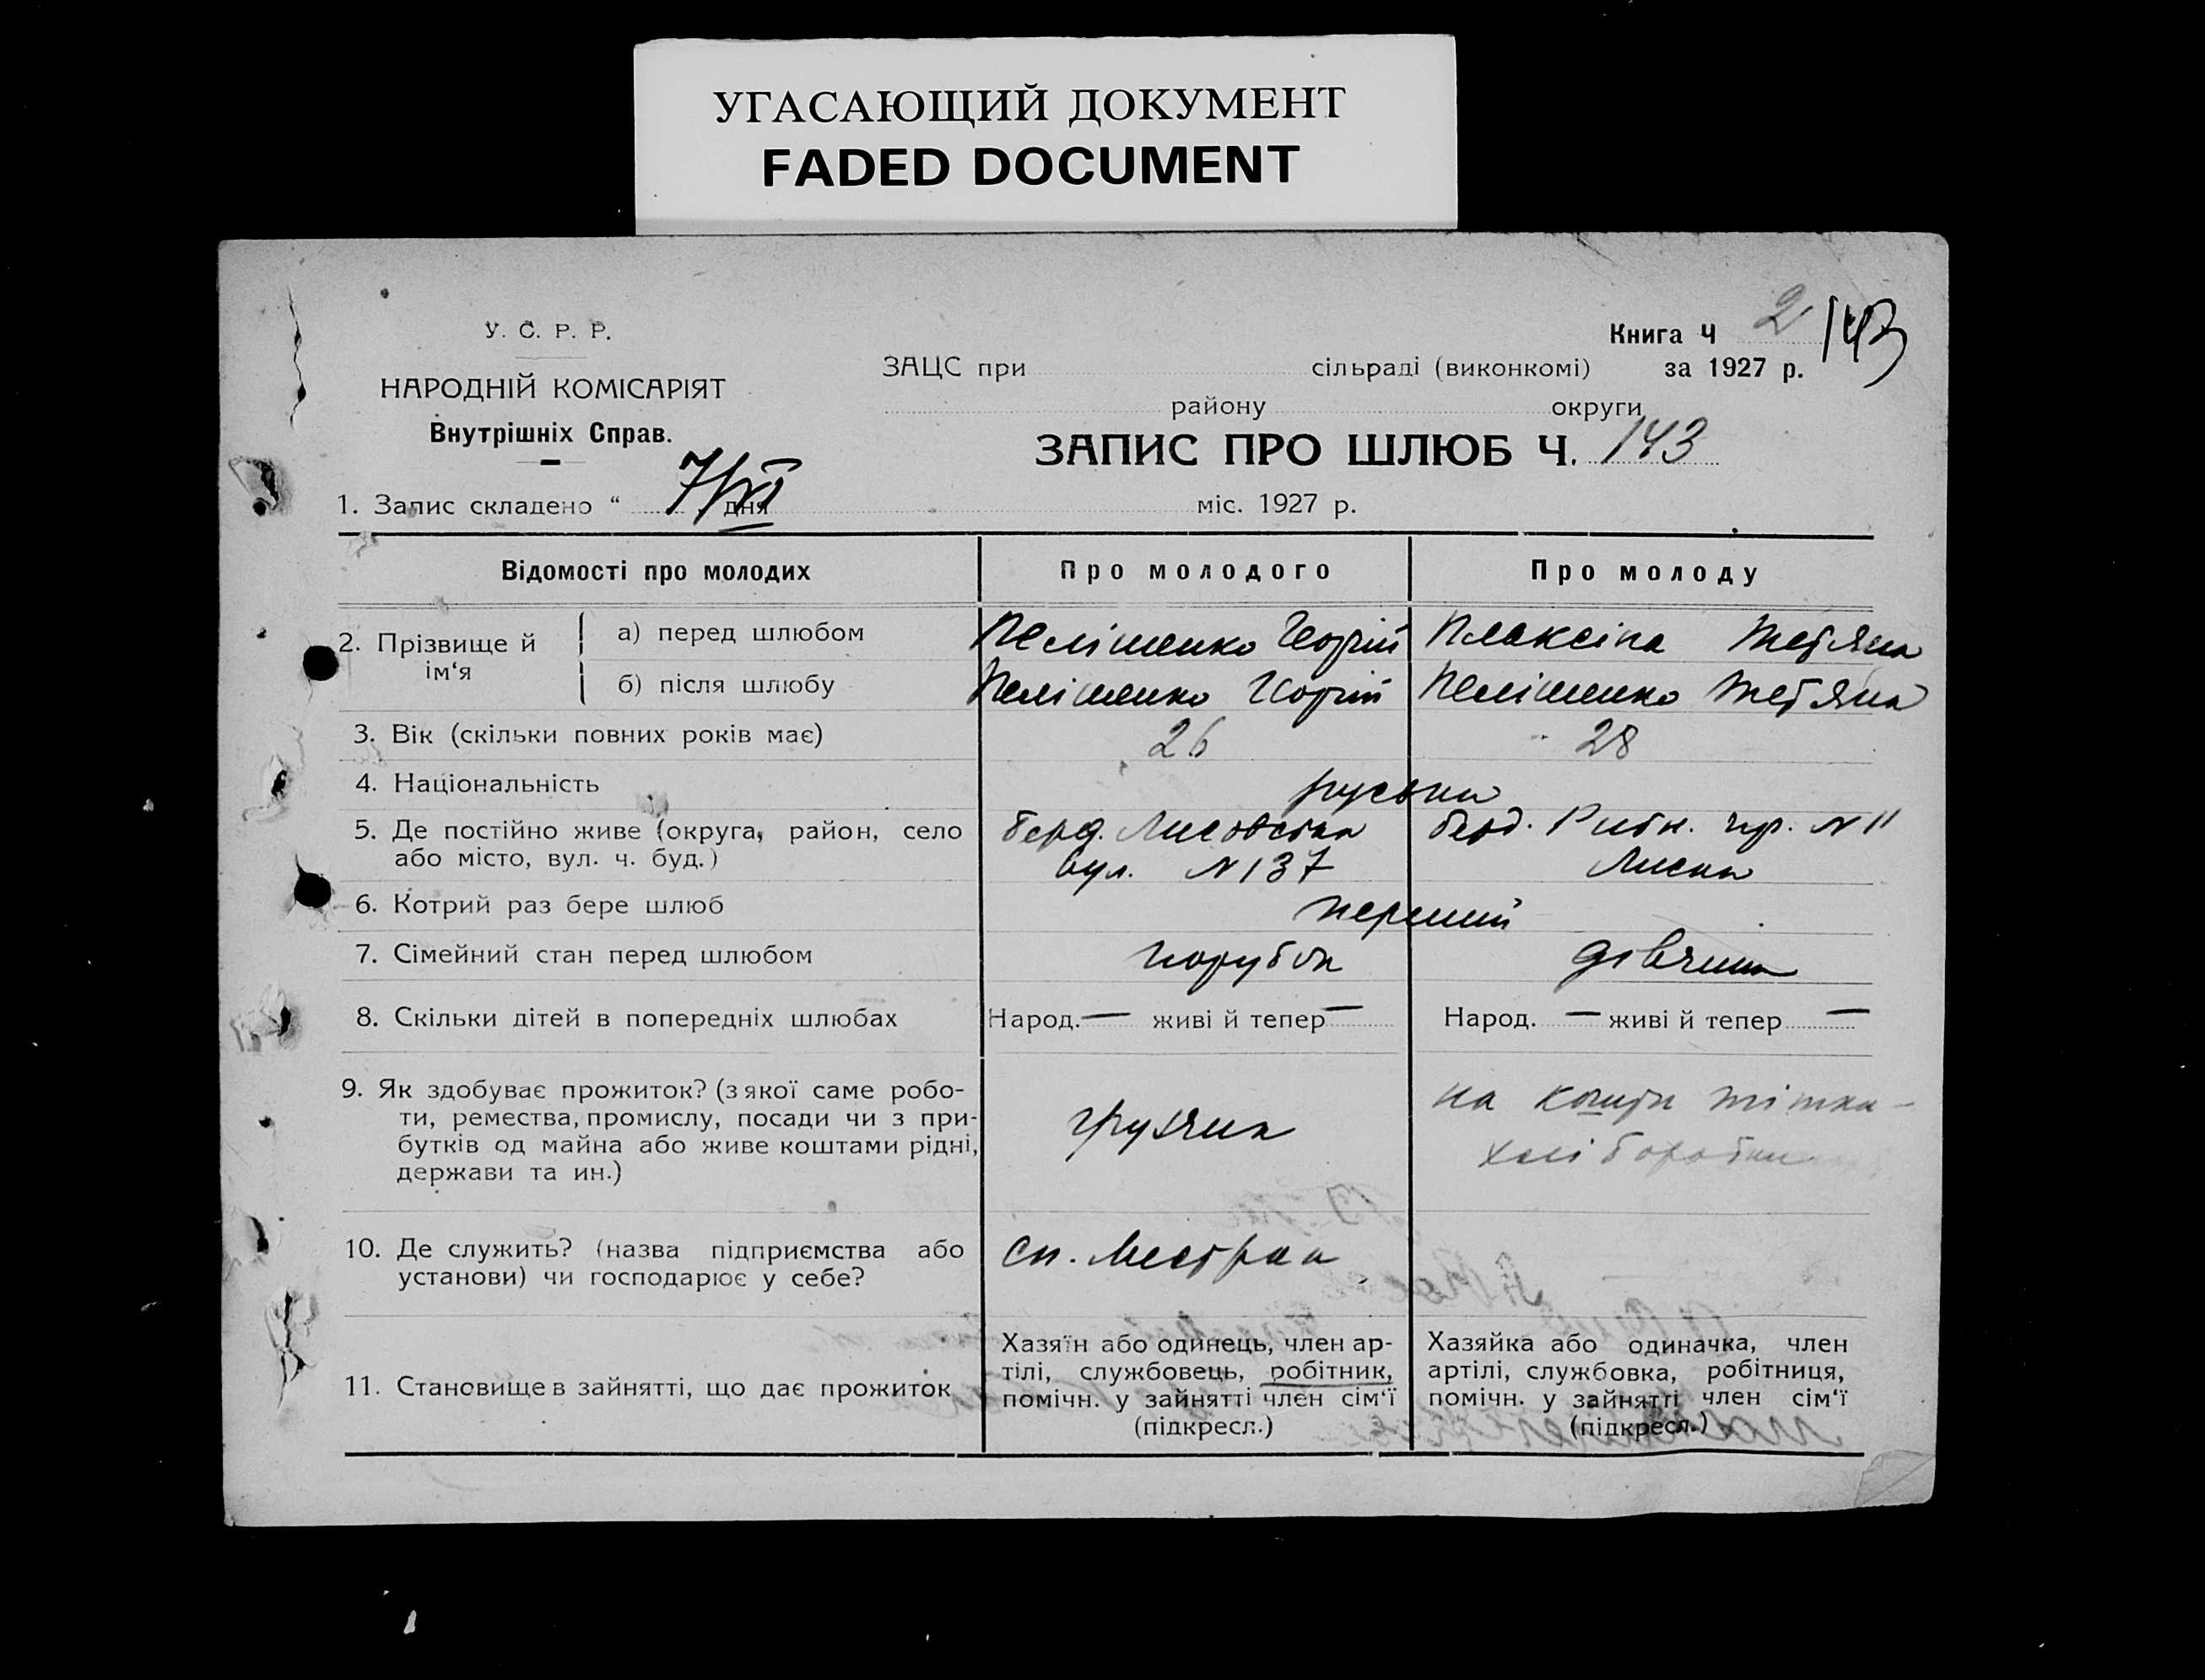 УГАСАЮЩИЙ ДОКУМЕНТ
FADED DOCUMENT
У. С. Р. Р.
НАРОДНІЙ КОМІСАРІЯТ
Внутрішніх Справ.
Книга Ч 2 143
ЗАЦС при сільраді (виконкомі) за 1927 р.
району округи
ЗАПИС ПРО ШЛЮБ Ч. 143
1. Запис складено “ 7/XI дня міс. 1927 р.
Відомості про молодих Про молодого Про молоду
2. Прізвище й ім‘я
а) перед шлюбом Пелішенко Георгій Плаксіна Тетяна
б) після шлюбу Пелішенко Георгій Пелішенко Тетяна
3. Вік (скільки повних років має) 26 28
4. Національність руськи
5. Де постійно живе (округа, район, село
або місто, вул. ч. буд.)
Берд. Лисовська
вул. N 137
Берд. N 11
Лиски
6. Котрий раз бере шлюб перший
7. Сімейний стан перед шлюбом парубок дівчина
8. Скільки дітей в попередніх шлюбах Народ. — живі й тепер — Народ. — живі й тепер —
9. Як здобуває прожиток? (з якої саме робо-
ти, ремества, промислу, посади чи з при-
бутків од майна або живе коштами рідні,
держави та ин.)
грузчик
на кошти
хліборобки
10. Де служить? (назва підприємства або
установи) чи господарює у себе?
11. Становище в зайнятті, що дає прожиток
Хазяїн або одинець, член ар-
тілі, службовець, робітник,
помічн. у зайнятті член сім‘ї
(підкресл.)
Хазяйка або одиначка, член
артілі, службовка, робітниця,
помічн. у зайнятті член сім‘ї
(підкресл.)